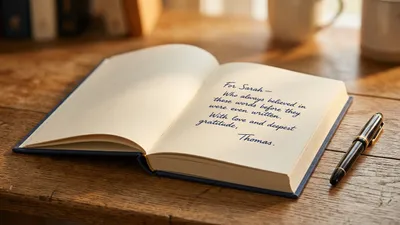 For Sarah—
Who always believed in
these words before they
were even written.
With love and deepest
gratitude,
Thomas.